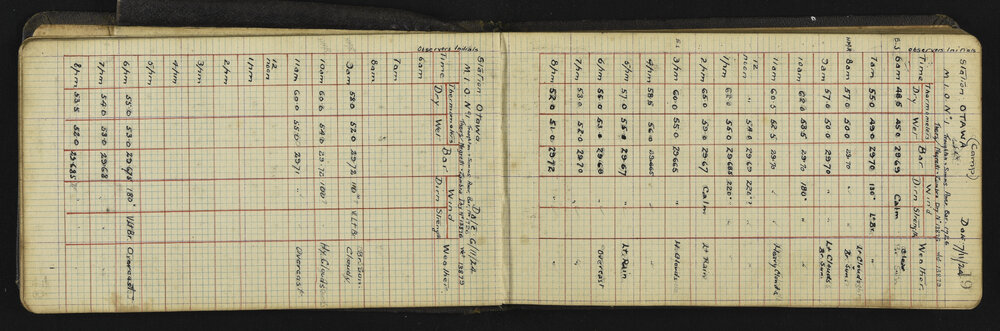 Station Otawa. Date 6/11/24
M.I.O. Nº1
Thermometers Wind
Time Dry Wet Bar Dirn Strength Weather.
Observers Initials
6am
7am
8am
9am 58.0 52.0 29.72 180° V.Lt Br. Br. Sun Cloudy
10am 60.0 54.0 29.72 180° " Hy. Clouds
11am 60.0 55.0 29.71 " Overcast
12 noon
1pm
2pm
3pm
4pm
5pm
6pm 55.0 53.0 29.675 180° V.Lt Br. Overcast
7pm 54.0 53.0 29.68 " "
8pm 53.5 52.0 29.685 "
9
Station OTAWA (Camp) Date 7/11/24
M.I.O. Nº1
Thermometers Wind
Time Dry Wet Bar Dirn Strength Weather.
Observers Initials
6am 48.5 45.0 29.69 Calm
7am 55.0 49.0 29.70 180° Lt Br. "
8am 57.0 50.0 29.70 " " Lt Clouds Br Sun
9am 57.0 50.0 29.70 " " Lt Clouds Br. Sun
10am 62.0 53.5 29.70 180° "
11am 60.5 52.5 29.70 " " Heavy Clouds
12 noon 62.0 54.0 29.69 220° "
1pm 62.0 56.0 29.685 220° "
2pm 65.0 59.0 29.67 Calm Lt Rain
3pm 60.0 55.0 29.665 Hy. Clouds
4pm 58.5 56.0 29.665
5pm 57.0 55.0 29.67 Lt. Rain
6pm 56.0 53.0 29.68 Overcast
7pm 53.0 52.0 29.70 "
8pm 52.0 51.0 29.72 "